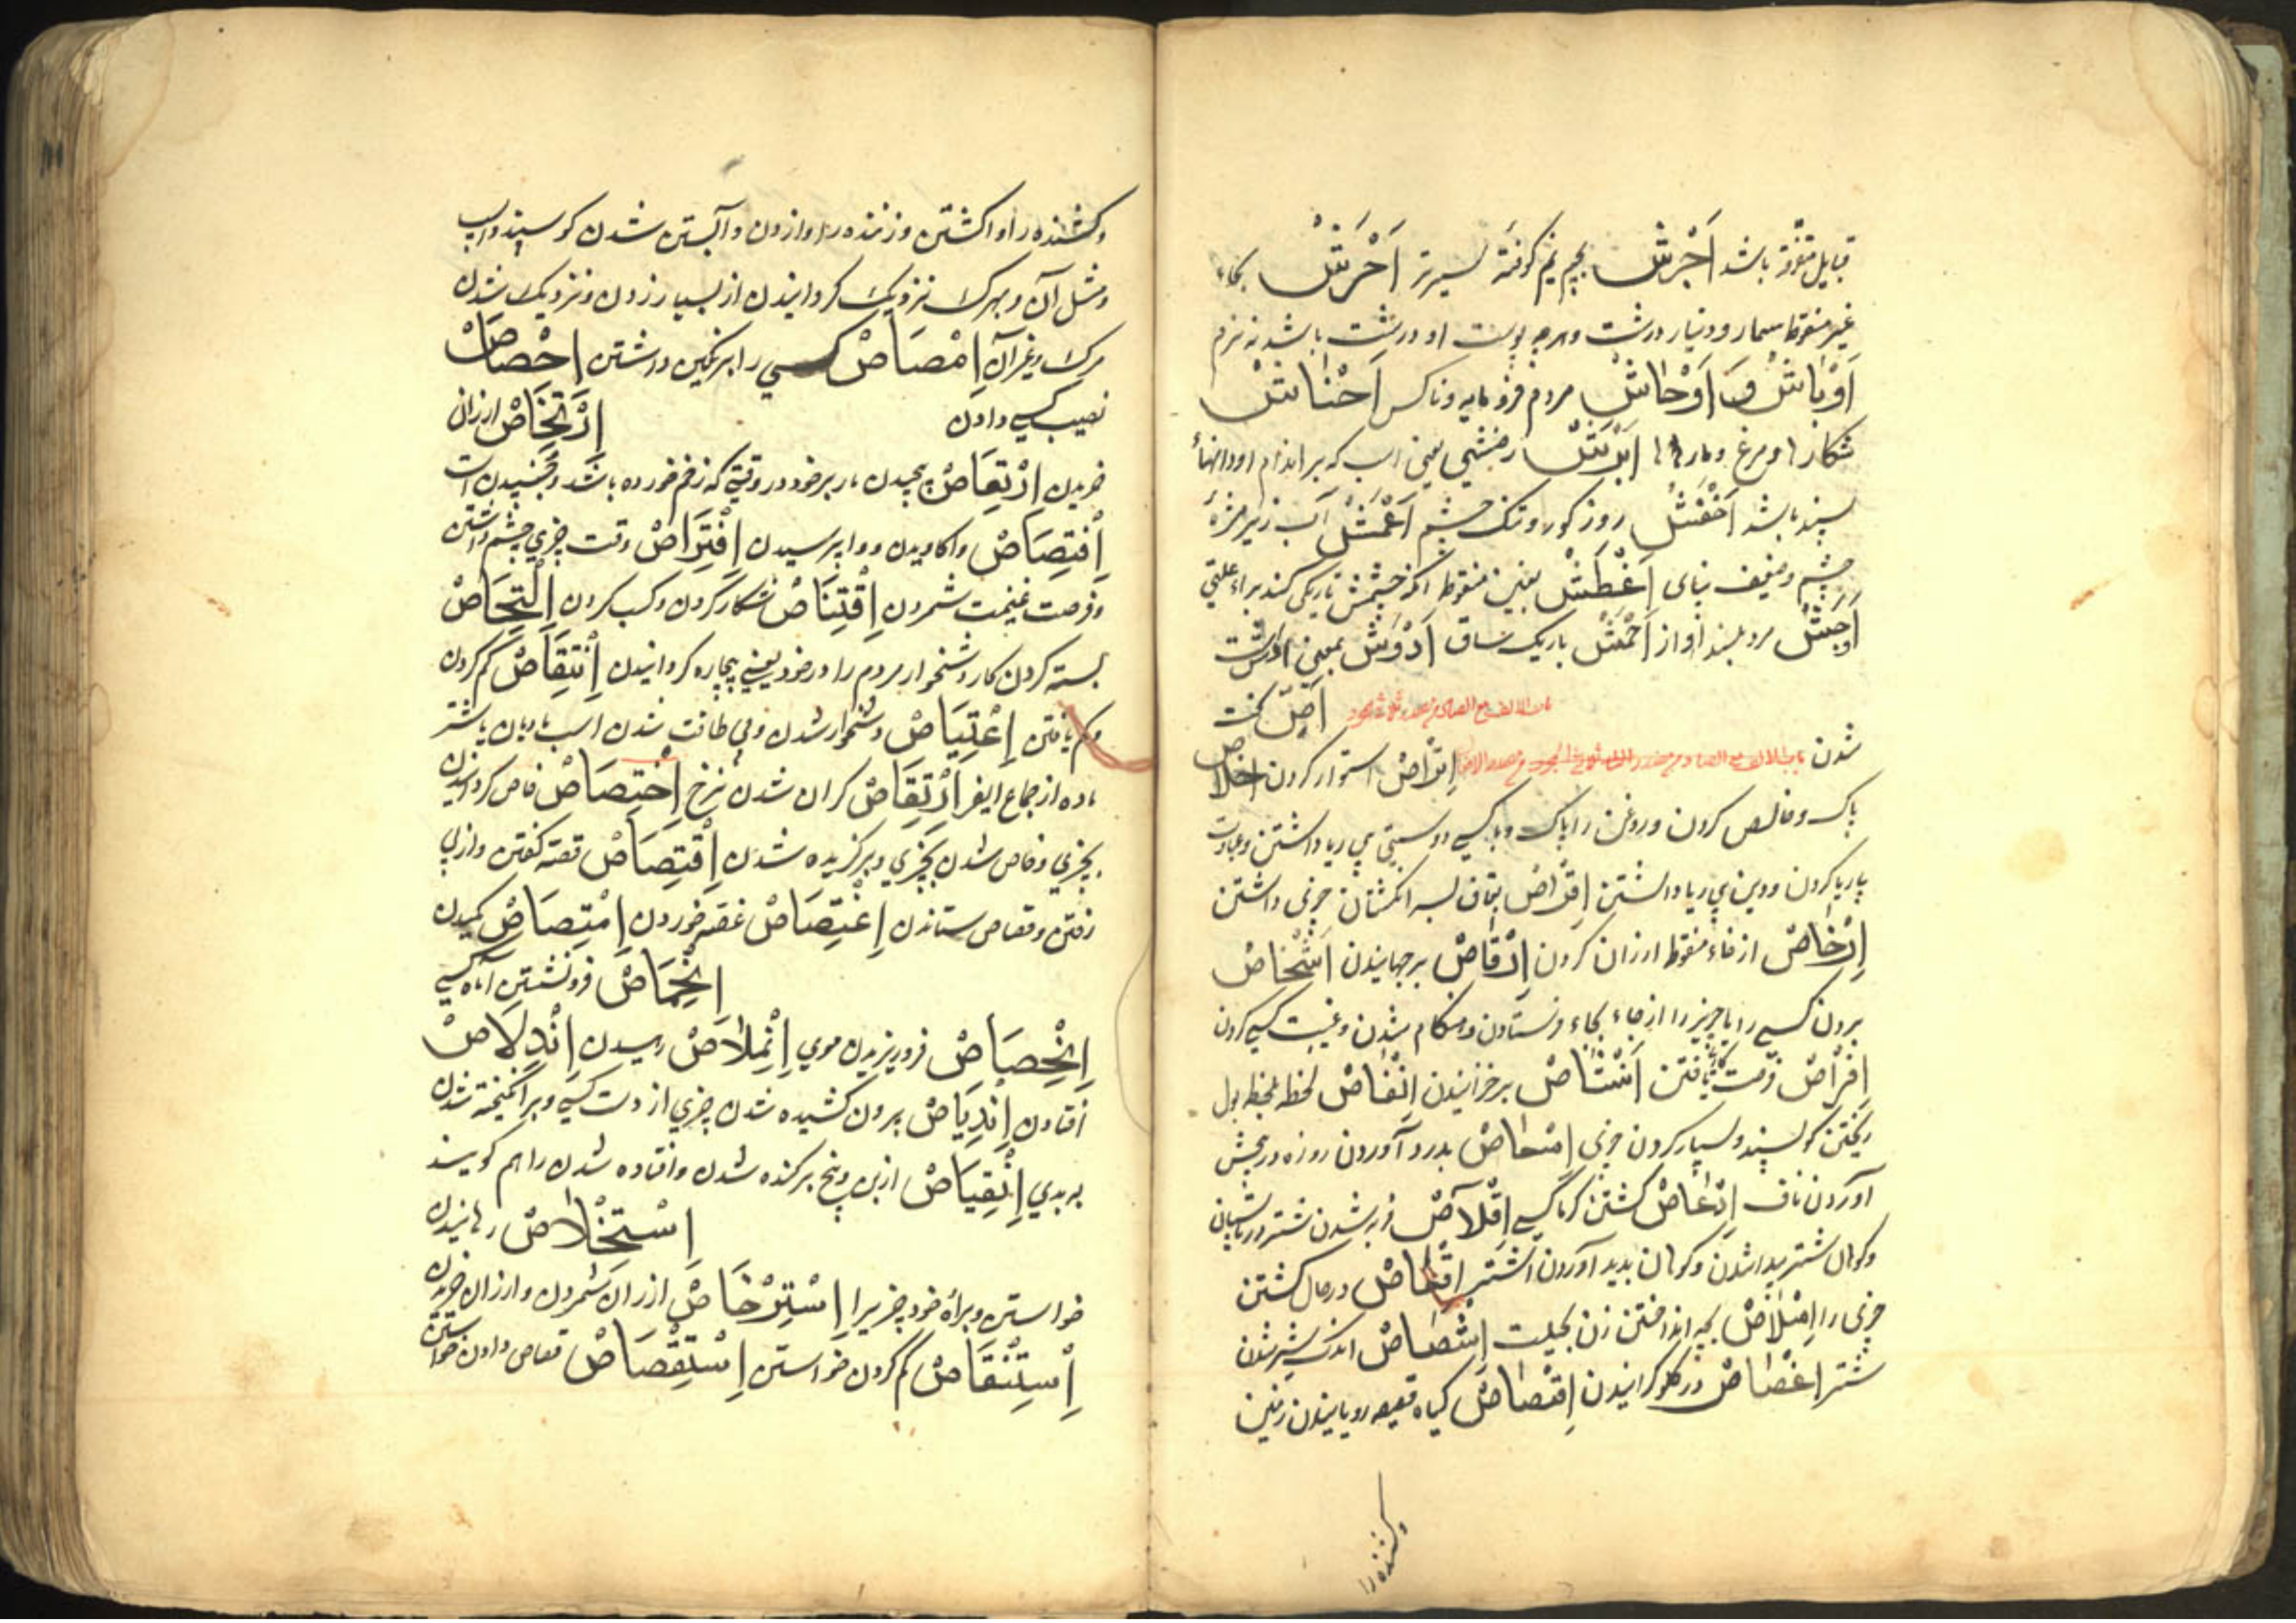 قبایل متفرقه باشد اَجْرَشْ بجیم نیم کوفته اَحْرَشْ بحاء
غیر منقوطه سمار و دینار درشت و هرچه پوست او درشت باشد نه نرم
اَوْبَاشْ وَ اَوْخَاشْ مردم فرومایه و ناکس اَحْنَاشْ
شکارها و مرغ و مارها اَبْرَشْ رخشی یعنی اسب که بر اندام او دانهاء
سپید باشد اَخْفَشْ روز کور و تنک چشم اَعْمَشْ آب زیر مژهٔ
چشم و ضعیف بینای اَغْطَشْ بغین منقوطه آنکه چشمش تاریکی کند براء علتی
اَجَشْ مرد بلند آواز اَحْمَشْ باریک ساق اَدْوَشْ بمعنی
اَصِّ سخت
شدن اِتْرَاصْ استوار کردن اخلاص
پاک و خالص کردن و روغن را پاک و با کسی دوستی بی ریا داشتن و عبادت
بیریا کردن و دین بی ریا داشتن بقاف بسر انکشتان چیزی داشتن
اِرْخَاصْ از خاء منقوطه ارزان کردن اِرْقَاصْ برجهانیدن اَشْخَاصْ
بردن کسی را یا چیز را از جاء بجاء فرستادن و هنکام شدن و غیبت کسی کردن
اِفْرَاصْ فرصت یافتن اَنْشَاصْ برخیزانیدن اِنْفَاصْ لحظه بلحظه بول
ریختن کوسپند و بسیار کردن چیزی بدرد آوردن روزه در جنبش
آوردن ناف اِدْعَاصْ کشتن کرما کسی اِقْلَاصْ فربه شدن شتر در تابستان
و کوهان شتر پیدا شدن و کوهان پدید آوردن اشتر اِقْعَاصْ در حال کشتن
چیزی را اِمْلَاصْ بچه انداختن زن بجلیت اِشْصَاصْ اندک شیر شدن
شتر اِغْصَاصْ در کلو کرانیدن اِقْصَاصْ کیاه قصیصه رویانیدن زمین
وکشنده را
وکشنده را واکشتن و زننده را وازدن و آبستن شدن کوسپند و اسب
و مثل آن و بمرک نزدیک کردانیدن از بسیار زدن و نزدیک شدن
مرک و غیر آن اِمْصَاصْ کسی را بر مکیدن داشتن اِحْصَاصْ
نصیب کسی دادن اِرْتِخَاصْ ارزان
خریدن اِرْتِعَاصْ پیچیدن مار بر خود در وقتی که زخم خورده باشد و جنبیدن است
اِفْتِصَاصْ واکاویدن و واپرسیدن اِفْتِرَاصْ وقت چیزی چشم داشتن
و فرصت غنیمت شمردن اِقْتِنَاصْ شکار کردن و کسب کردن اِلْتِحَاصْ
بسته کردن کار دشخوار مردم را در خود یعنی بیچاره کردانیدن اِنْتِقَاصْ کم کردن
و کم یافتن اِعْتِیَاصْ دشخوار شدن و بی طاقت شدن اسب مادیان یا شتر
ماده از جماع اِرْتِقَاصْ کران شدن نرخ اِخْتِصَاصْ خاص کردانیدن
بچیزی و خاص شدن بچیزی و برکزیده شدن اِقْتِصَاصْ قصه کفتن و از پی
رفتن و قصاص ستاندن اِغْتِصَاصْ غصه خوردن اِمْتِصَاصْ مکیدن
اِنْخِمَاصْ فرونشستن آماه کسی
اِنْحِصَاصْ فروریزیدن موی اِنْمِلَاصْ رهیدن اِنْدِلَاصْ
افتادن اِنْدِیَاصْ بیرون کشیده شدن چیزی از دست کسی و برانکیخته شدن
به بدی اِنْقِیَاصْ از بن و بیخ برکنده شدن و افتاده شدن را هم کویند
اِسْتِخْلَاصْ رهانیدن
خواستن و براء خود چیزیرا اِسْتِرْخَاصْ ارزان شمردن و ارزان خریدن
اِسْتِنْقَاصْ کم کردن خواستن اِسْتِقْصَاصْ قصاص دادن خواستن